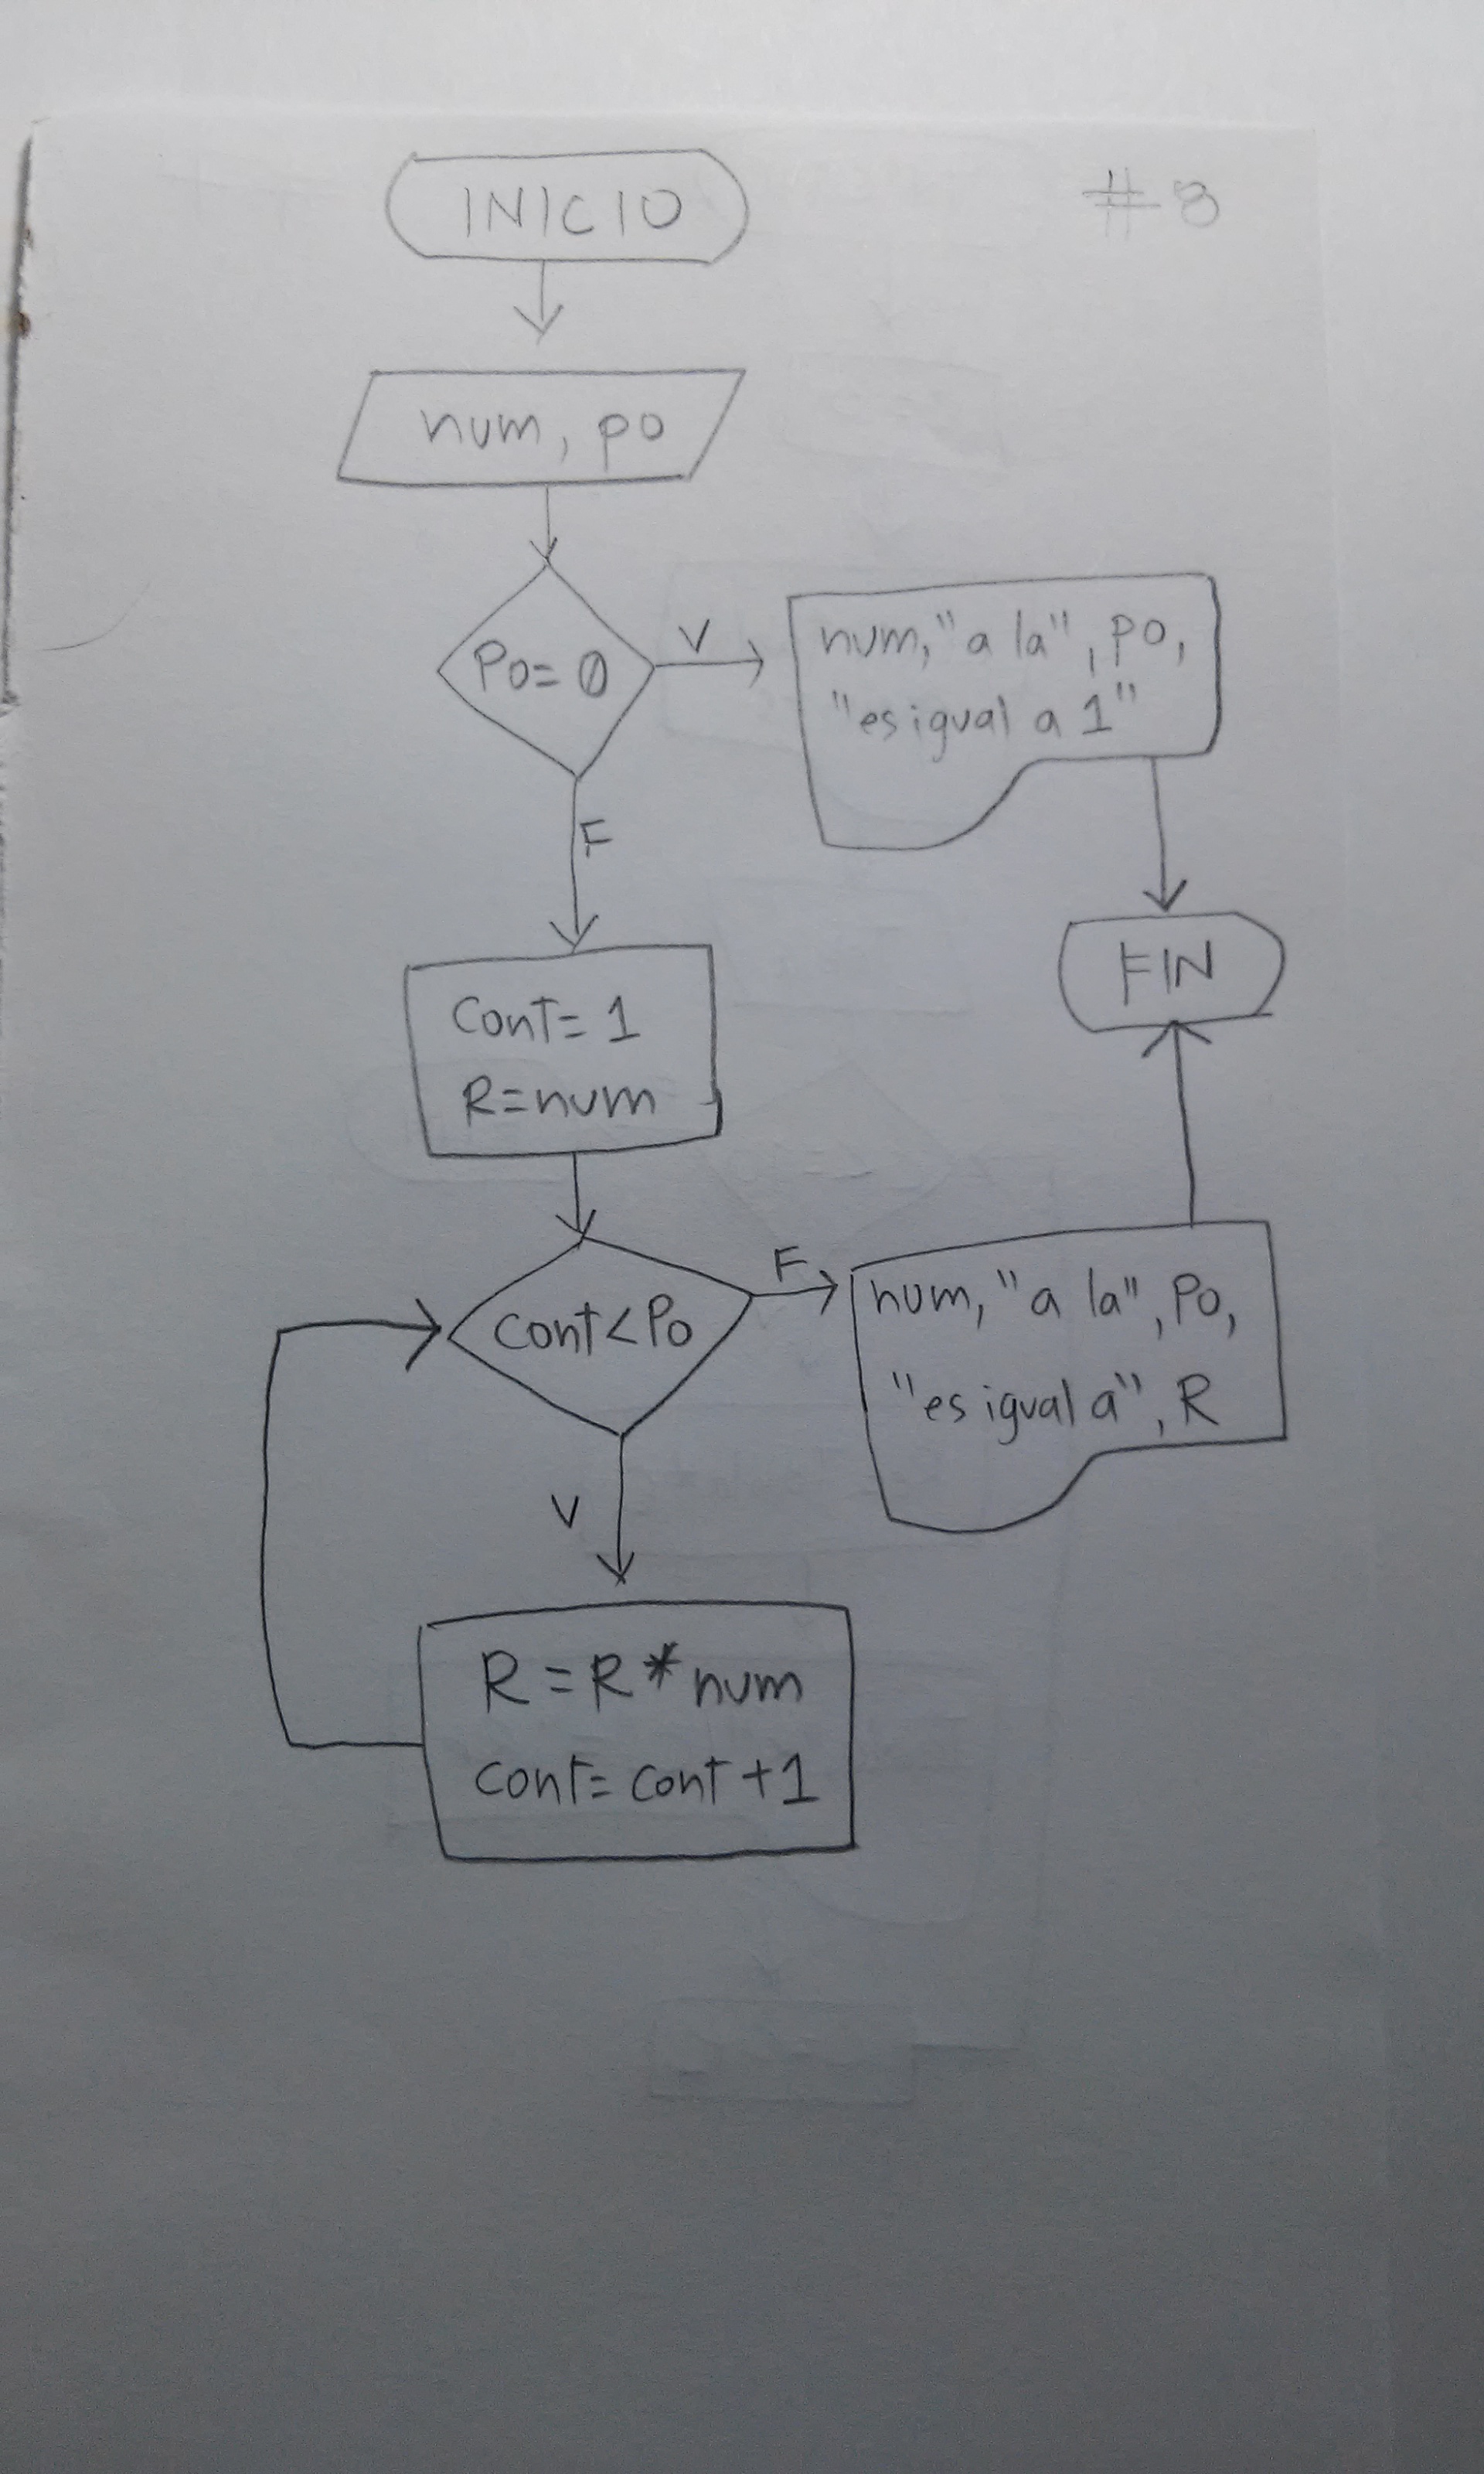 INICIO
#8
num, po
Po=0
V
num, "a la", po,
"es igual a 1"
F
FIN
Cont= 1
R=num
Cont<Po
F
num, "a la", Po,
"es igual a", R
V
R=R*num
cont= cont+1